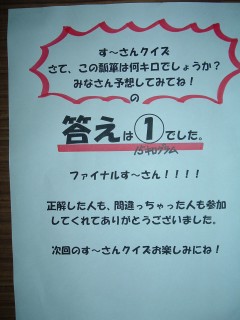 す～さんクイズ
さて、この瓢箪は何キロでしょうか？
みなさん予想してみてね！
の
答えは①でした。
1540グラム
ファイナルす～さん！！！！
正解した人も、間違っちゃった人も参加
してくれてありがとうございました。
次回のす～さんクイズお楽しみにね！